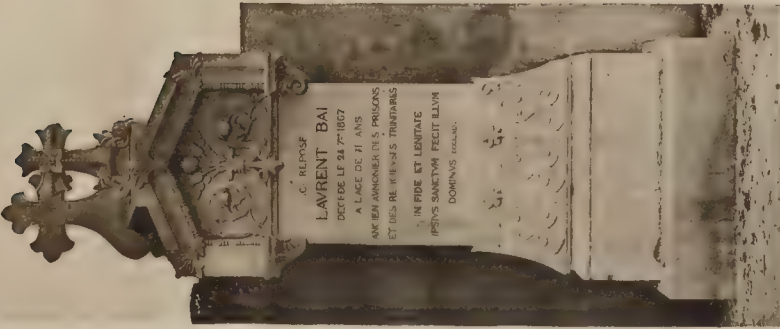 REPOSE
LAVRENT BAI
DECEDE LE 24 7bre 1867
A L'AGE DE 71 ANS
ANCIEN AUMONIER DES PRISONS
ET DES RELIGIEUSES TRINITAIRES
IN FIDE ET LENITATE
IPSIVS SANCTVM FECIT ILLVM
DOMINVS